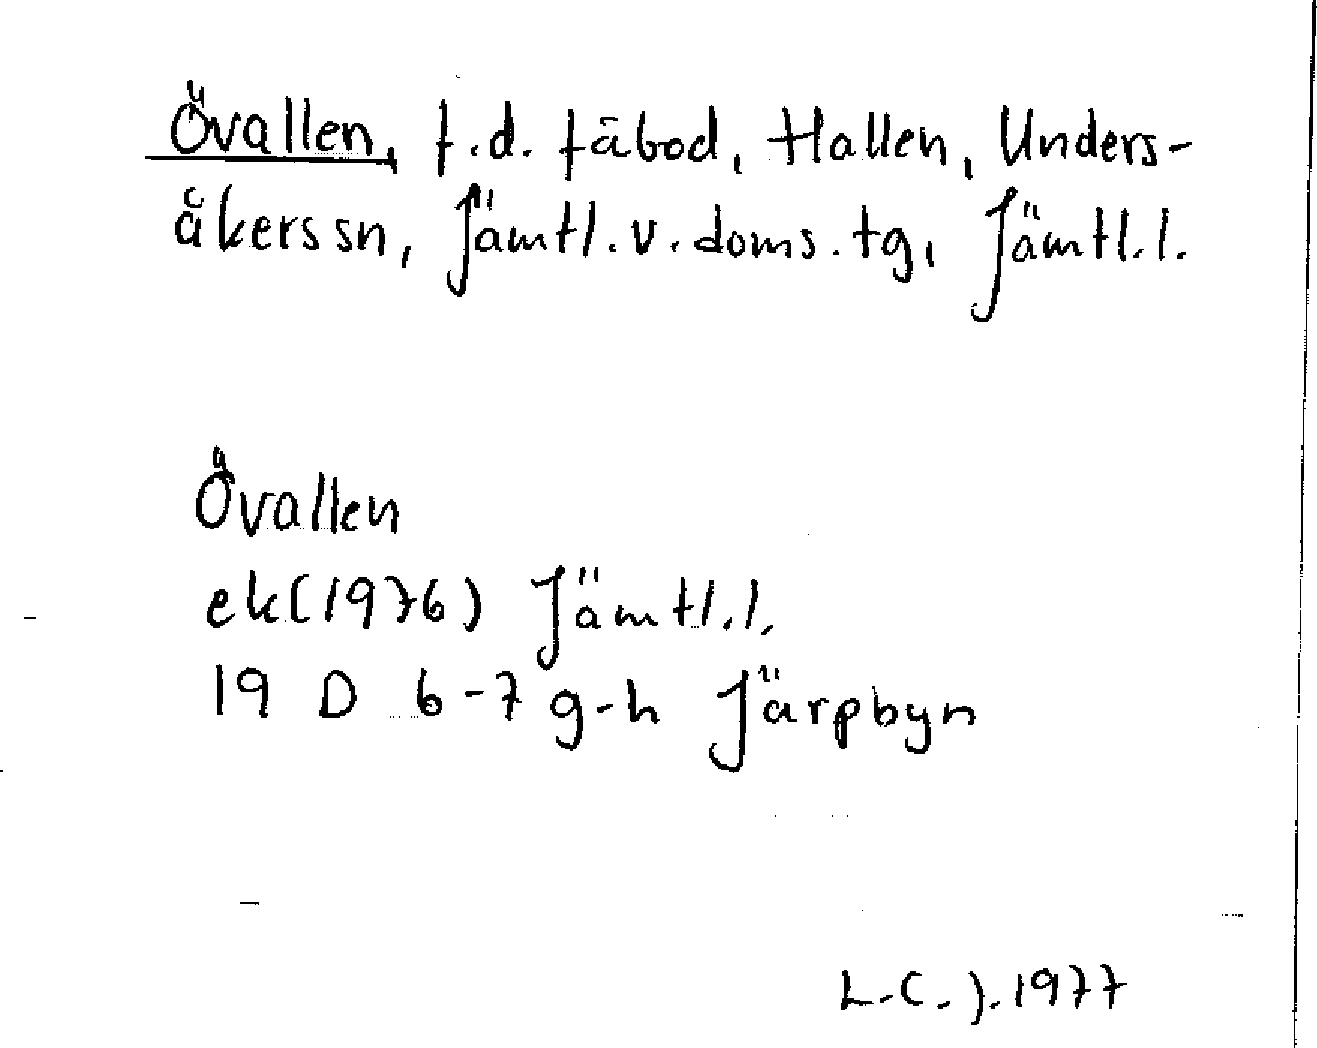 Övallen, f.d. fäbod, Hallen, Unders-
åkers sn, Jämtl. v. doms. tg, Jämtl. l.
Övallen
ek (1976) Jämtl. l.
19 D 6-7 g-h Järpbyn
L.C.J. 1977